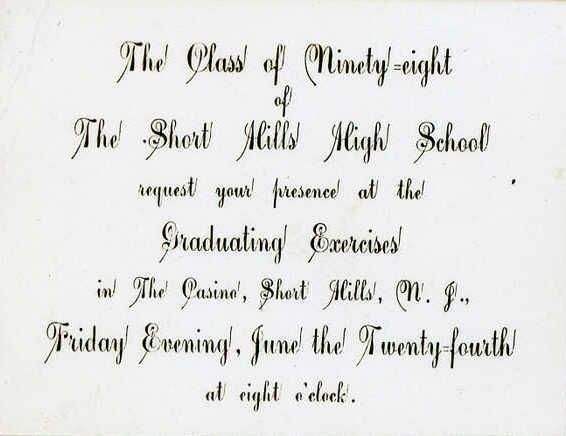 The Class of Ninety=eight
of
The Short Hills High School
request your presence at the
Graduating Exercises
in The Casino, Short Hills, N. J.,
Friday Evening, June the Twenty=fourth
at eight o'clock.